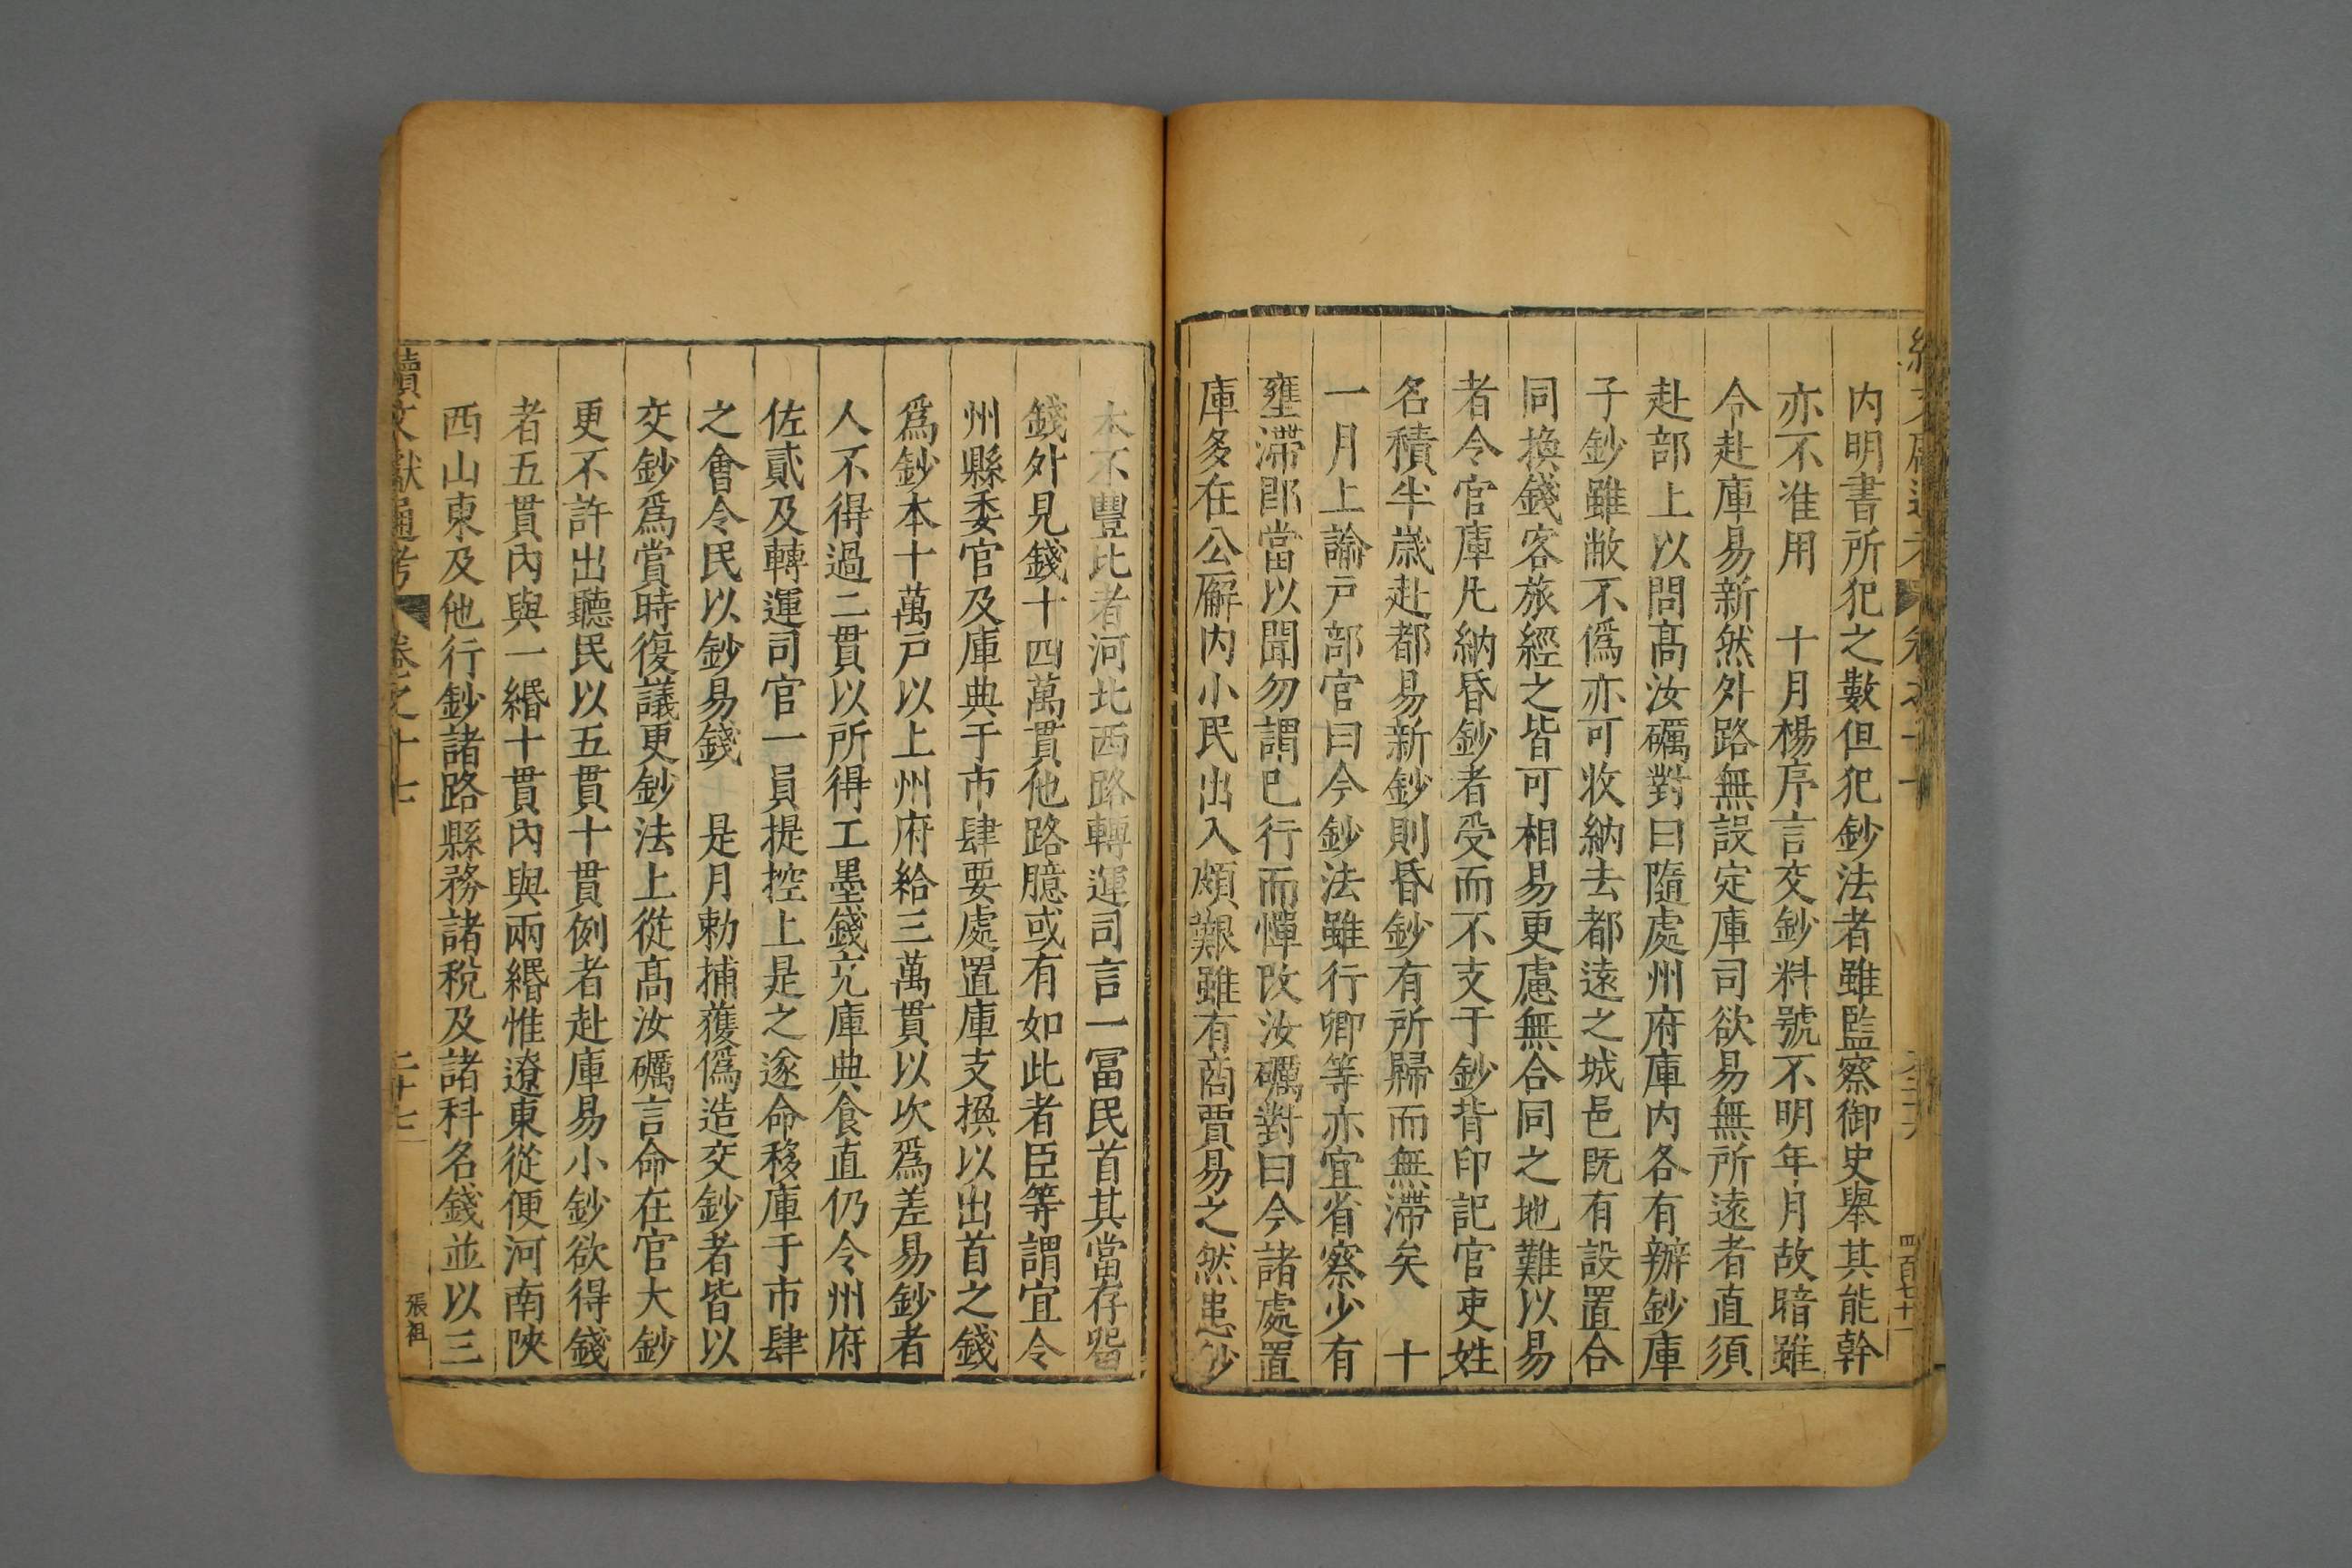 内明書所犯之數但犯鈔法者雖監察御史舉其能幹
亦不准用　十月楊序言交鈔料號不明年月故暗雖
令赴庫易新然外路無設定庫司欲易無所遠者直須
赴部上以問高汝礪對曰隨處州府庫内各有辦鈔庫
子鈔雖敝不僞亦可收納去都遠之城邑既有設置合
同換錢客旅經之皆可相易更慮無合同之地難以易
者令官庫凡納昏鈔者受而不支于鈔背印記官吏姓
名積半歲赴都易新鈔則昏鈔有所歸而無滯矣　十
一月上諭戸部官曰今鈔法雖行卿等亦宜省察少有
壅滯即當以聞勿謂已行而憚改汝礪對曰今諸處置
庫多在公廨内小民出入頗難雖有商賈易之然患鈔
本不豐比者河北西路轉運司言一冨民首其當存留
錢外見錢十四萬貫他路臆或有如此者臣等謂宜令
州縣委官及庫典于市肆要處置庫支換以出首之錢
爲鈔本十萬戸以上州府給三萬貫以次爲差易鈔者
人不得過二貫以所得工墨錢充庫典食直仍令州府
佐貳及轉運司官一員提控上是之遂命移庫于市肆
之會令民以鈔易錢　是月勅捕獲僞造交鈔者皆以
交鈔爲賞時復議更鈔法上從高汝礪言命在官大鈔
更不許出聽民以五貫十貫例者赴庫易小鈔欲得錢
者五貫內與一緡十貫內與兩緡惟遼東從便河南陝
西山東及他行鈔諸路縣務諸稅及諸科名錢並以三
續文獻通考　卷之十七　二十七　張祖
四百七十一